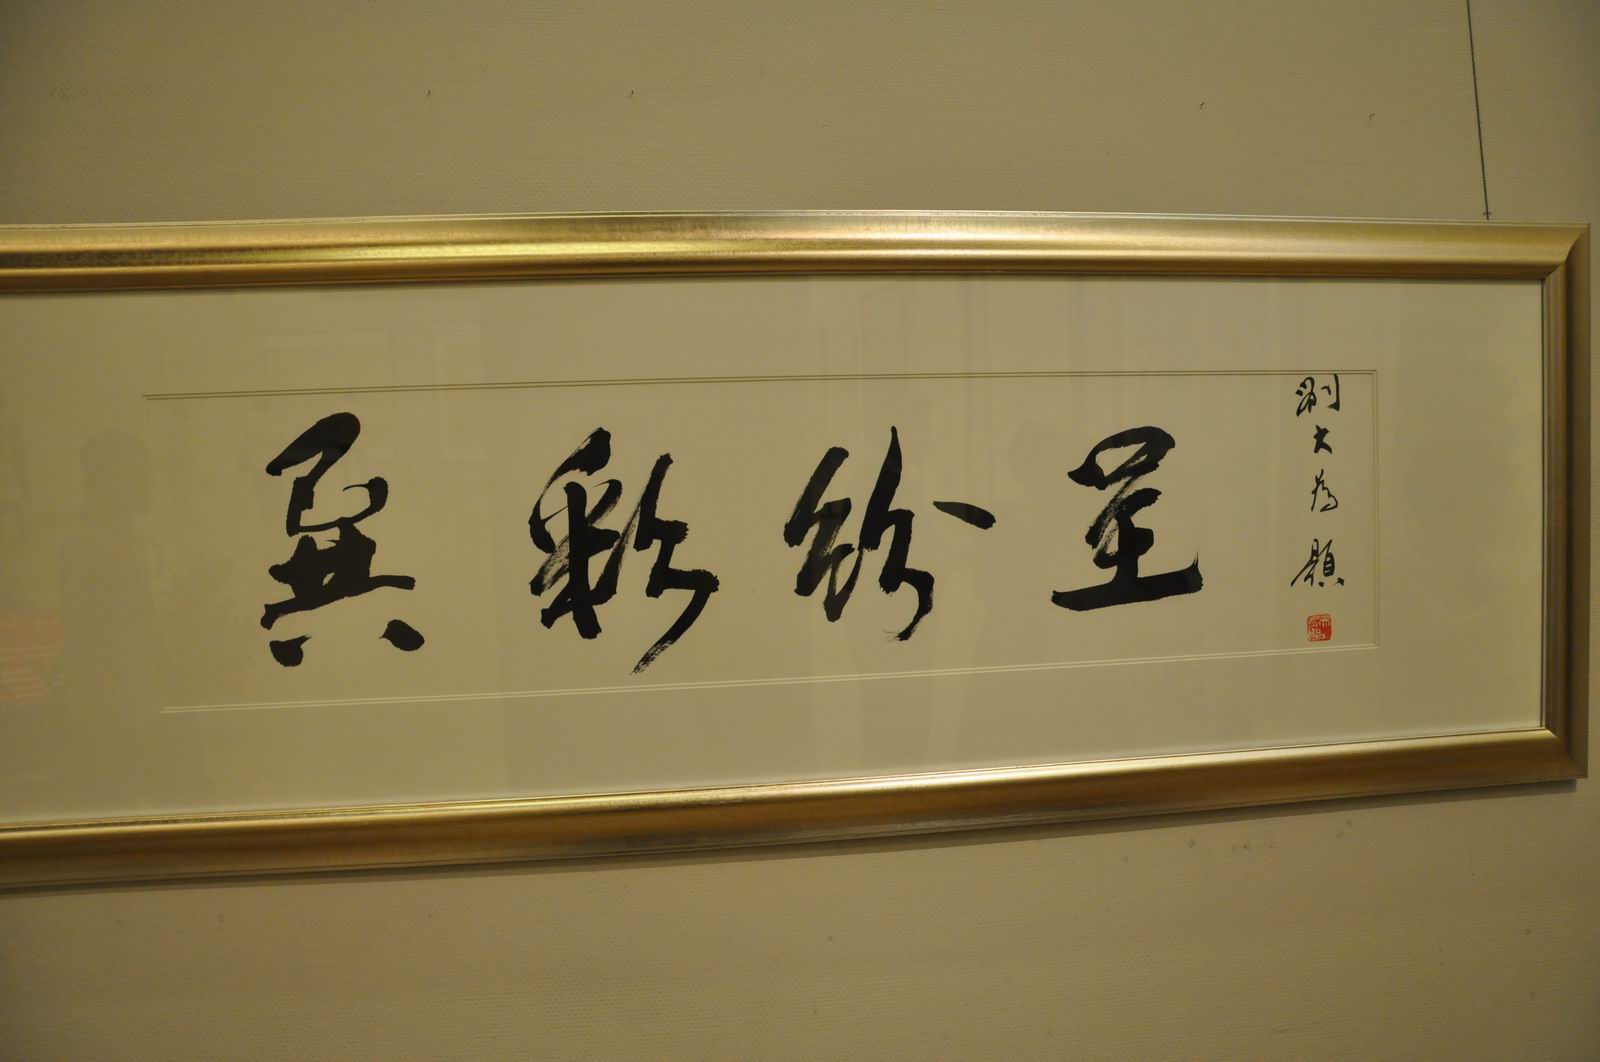 異彩紛呈
劉大為題